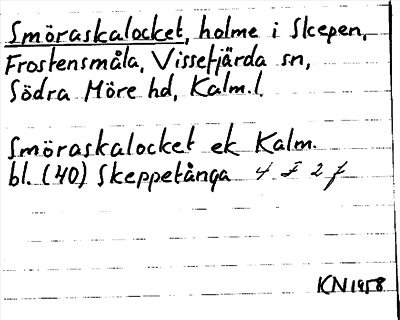 Smöraskalocket, holme i Skepen,
Frostensmåla, Vissefjärda sn,
Södra Möre hd, Kalm.l.
Smöraskalocket ek Kalm.
bl. (40) Skeppetånga 4 I 2 f
KN1958